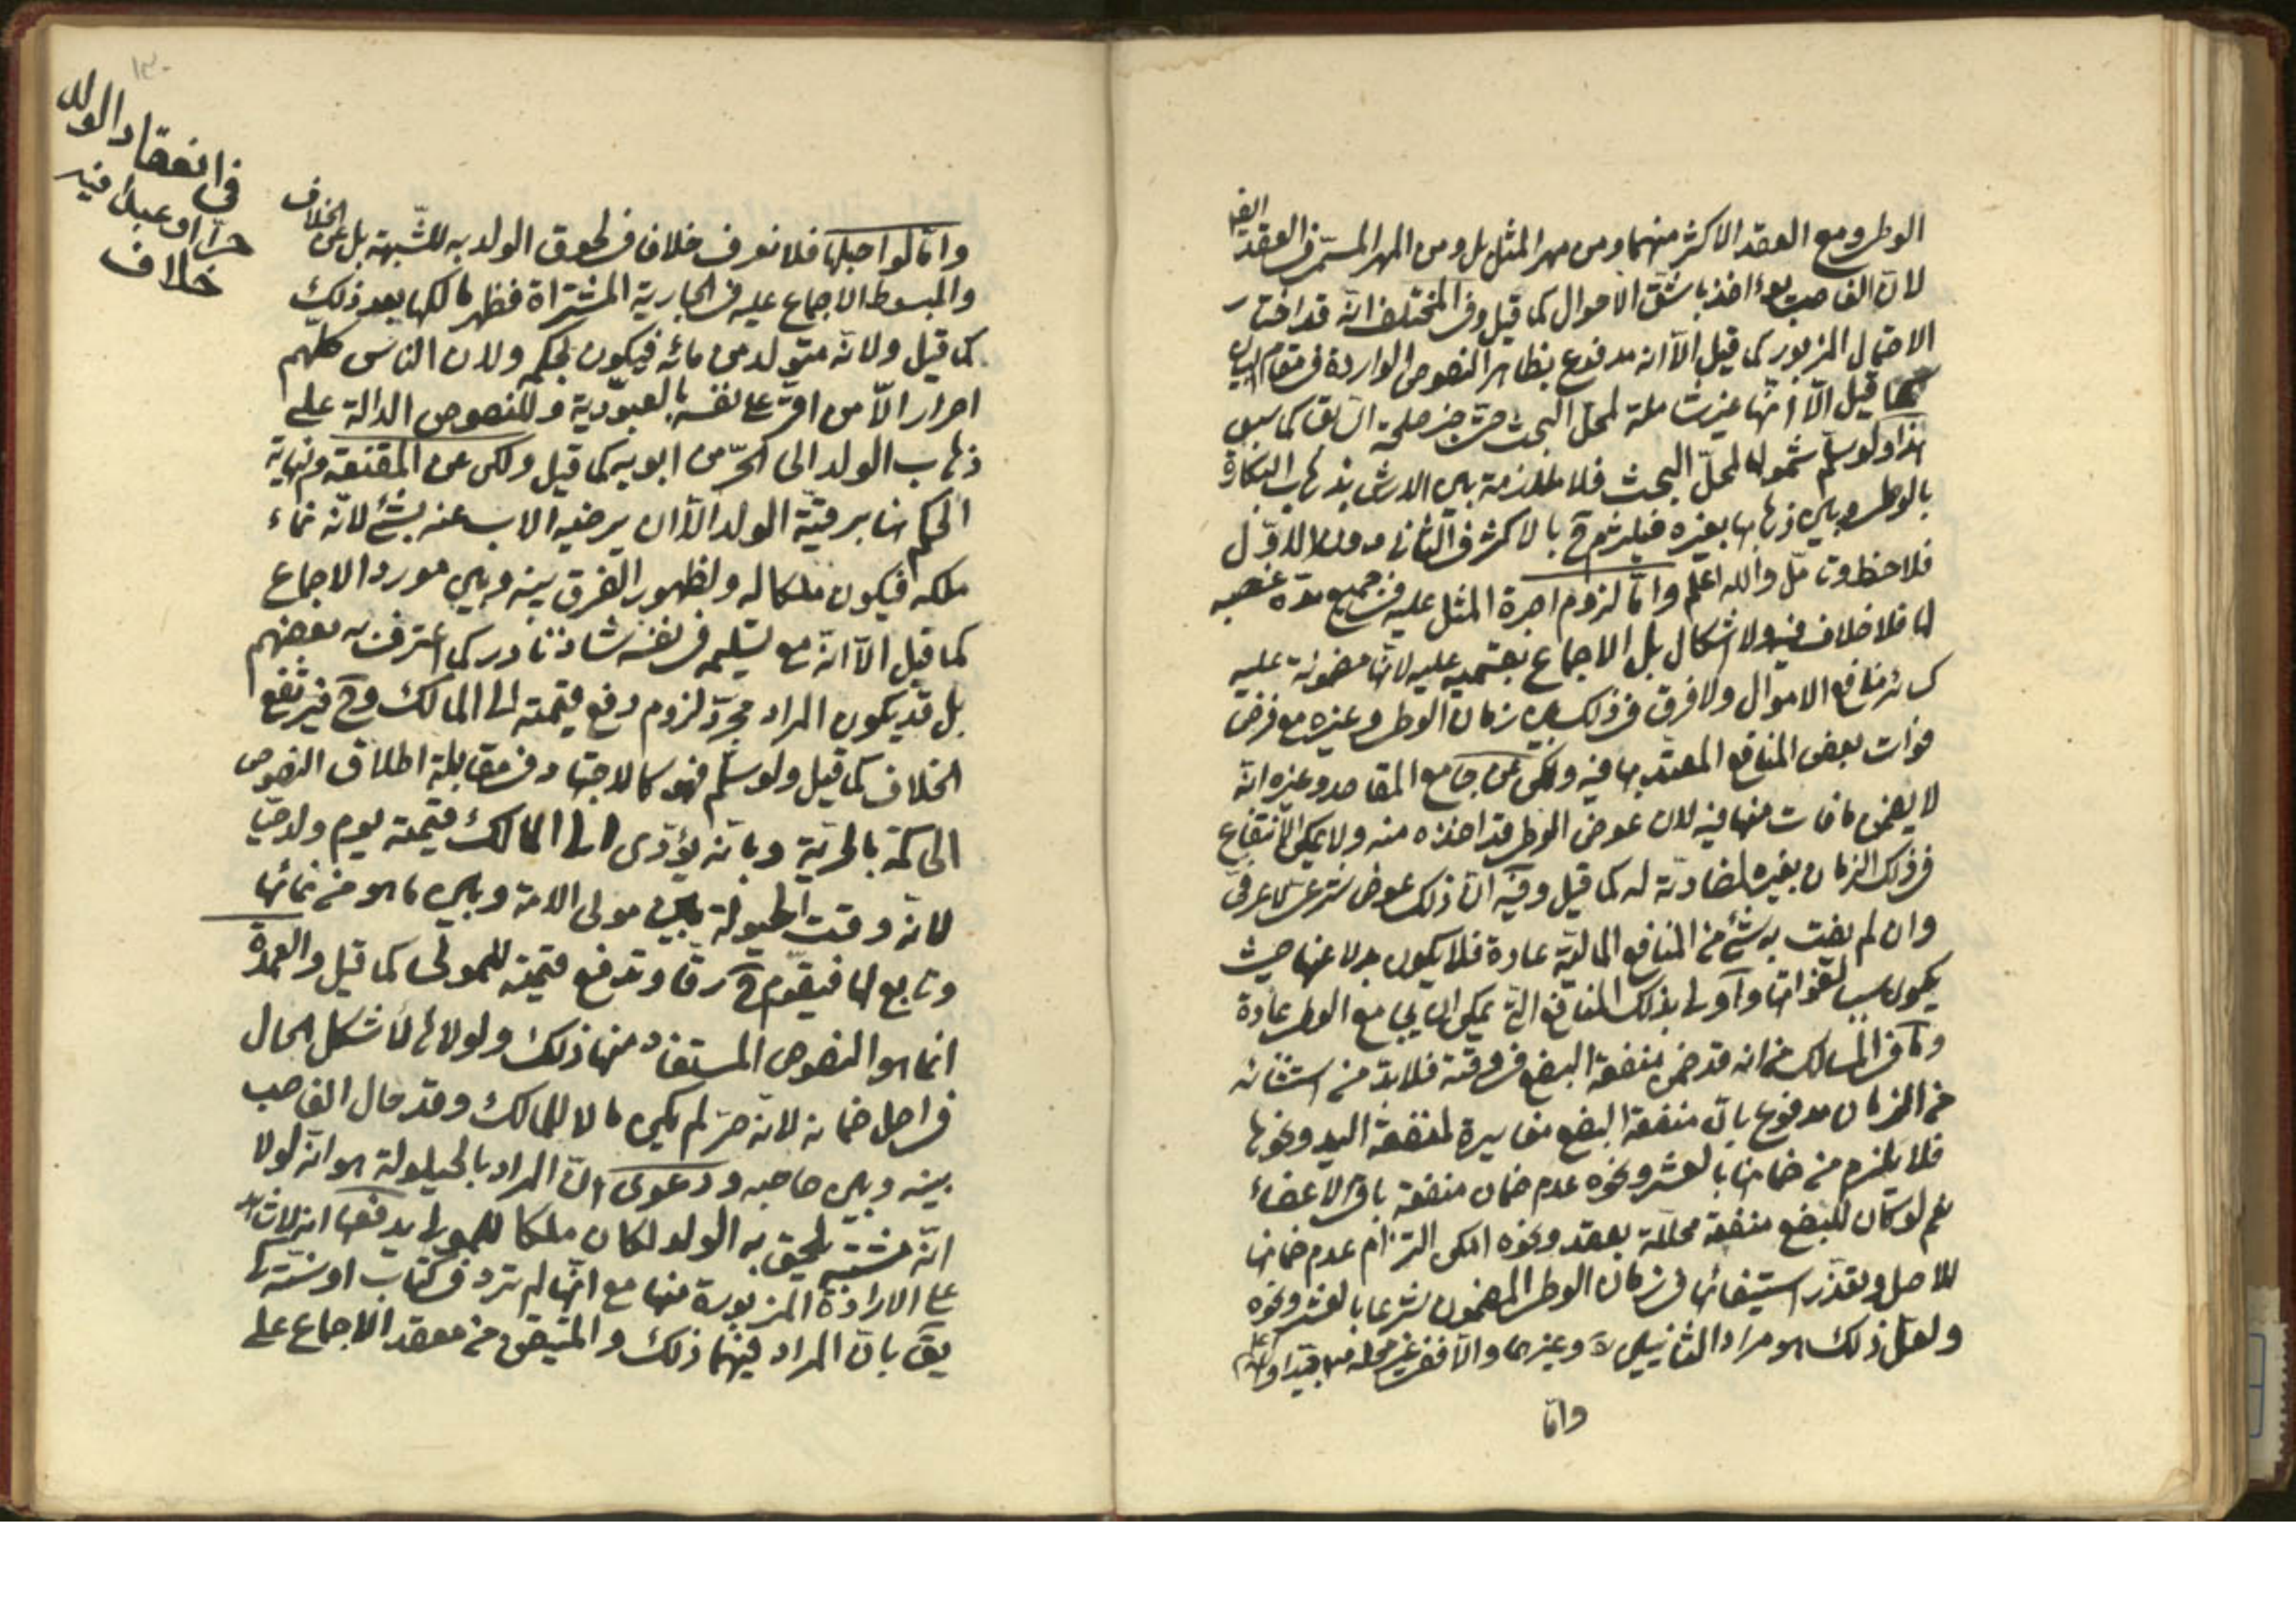 الوطى ومع العقد الاكثر منهما ومن مهر المثل بل ومن المهر المسمى فى العقد ايضا
لان الغاصب يؤاخذ باشق الاحوال كما قيل وفى المختلف انه قد اختار
الاحتمال المزبور كما قيل الا انه مدفوع بظاهر النصوص الواردة فى مقام البيان
كما قيل الا انها غير شاملة لمحل البحث حتى خبر طلحة السابق كما سبق
هذا ولو سلم شموله لمحل البحث فلا ملازمة بين الارش بذهاب البكارة
بالوطى وبين ذهابها بغيره فيلتزم ح بالاكثر فى الثانى دون الاول
فلاحظ وتامل والله اعلم واما لزوم اجرة المثل عليه فى جميع مدة غصبه
لها فلا خلاف فيه ولا اشكال بل الاجماع بقسميه عليه لانها مضمونة عليه
كسائر منافع الاموال ولا فرق فى ذلك بين زمان الوطى وغيره مع فرض
فوات بعض المنافع المعتد بها فيه ولكن عن جامع المقاصد وغيره انه
لا يضمن ما فات منها فيه لان عوض الوطى قد اخذه منه ولا يمكن الانتفاع
فى ذلك الزمان بغيره لمضادته له كما قيل وفيه ان ذلك عوض شرعى لا عرفى
وان لم يفت به شئ من المنافع المالية عادة فلا يكون بدلا عنها حيث
يكون سببا لفواتها واولى بذلك المنافع التى يمكن ان تجامع الوطى عادة
وما فى المسالك من انه قد ضمن منفعة البضع فى وقته فلابد من استثنائه
من الزمان مدفوع بان منفعة البضع مغايرة لمنفعة اليد ونحوها
فلا يلزم من ضمانها بالعشر ونحوه عدم ضمان منفعة باقى الاعضاء
نعم لو كان للبضع منفعة محللة بعقد ونحوه امكن التزام عدم ضمانها
للاصل وتعذر استيفائها فى زمان الوطى المضمون شرعا بالعشر ونحوه
ولعل ذلك هو مراد الثانيين وغيرهما والا ففى غير محله
واما
فى انعقاد الولد
حرا او عبدا فيه
خلاف
واما لو احبلها فلا نعرف خلافا فى لحوق الولد به للشبهة بل عن الخلاف
والمبسوط الاجماع عليه فى الجارية المشتراة فظهر مالكها بعد ذلك
كما قيل ولانه متولد من مائه فيكون بحكمه ولان الناس كلهم
احرار الا من اقر على نفسه بالعبودية وللنصوص الدالة على
ذهاب الولد الى الحر من ابويه كما قيل ولكن عن المقنعة ونهاية
الحكم هنا برقية الولد الا ان يرضيه الاب عنه بشئ لانه نماء
ملكه فيكون ملكا له ولظهور الفرق بينه وبين مورد الاجماع
كما قيل الا انه مع تسليمه فى نفسه شاذ نادر كما اعترف به بعضهم
بل قد يكون المراد مجرد لزوم دفع قيمته الى المالك وح فيرتفع
الخلاف كما قيل ولو سلم فهو كالاجتهاد فى مقابلة اطلاق النصوص
الحاكمة بالحرية وبانه يؤدى الى المالك قيمته يوم ولد حيا
لانه وقت الحيلولة بين مولى الامة وبين ما هو من نمائها
وتابع لها فيقوم ح رقا وتدفع قيمته للمولى كما قيل والعمدة
انما هو النصوص المستفاد منها ذلك ولولاها لاشكل الحال
فى اصل ضمانه لانه حر لم يكن مالا للمالك وقد حال الغاصب
بينه وبين صاحبه ودعوى ان المراد بالحيلولة هو انه لولا
انه مشتبه يلحق به الولد لكان ملكا للمولى يدفعها
على الارادة المزبورة منها مع انها لم ترد فى كتاب او سنة كما
يق بان المراد فيهما ذلك والمتيقن من معقد الاجماع على